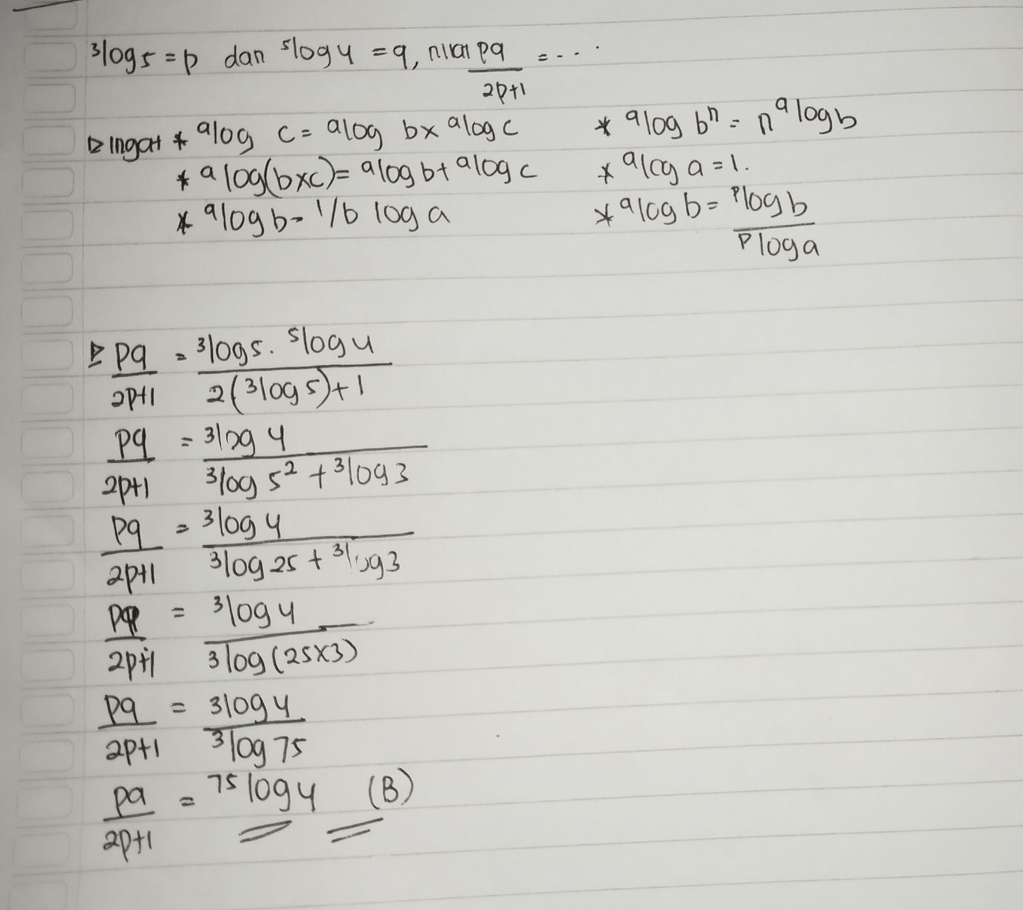 ³log5 = p dan ⁵log4 = q, nilai pq/2p+1 = ...
▷ Ingat * ᵃlog c = ᵃlog b x ᵃlog c * ᵃlog bⁿ = n ᵃlog b
* ᵃlog(bxc) = ᵃlog b + ᵃlog c * ᵃlog a = 1.
* ᵃlog b = 1/b log a * ᵃlog b = ᵖlog b/ᵖlog a
▷ pq/2p+1 = ³log5. ⁵log4/2(³log5)+1
pq/2p+1 = ³log 4/³log 5² + ³log3
pq/2p+1 = ³log 4/³log 25 + ³log3
pq/2p+1 = ³log 4/³log (25x3)
pq/2p+1 = ³log 4/³log 75
pq/2p+1 = ⁷⁵log 4 (B)